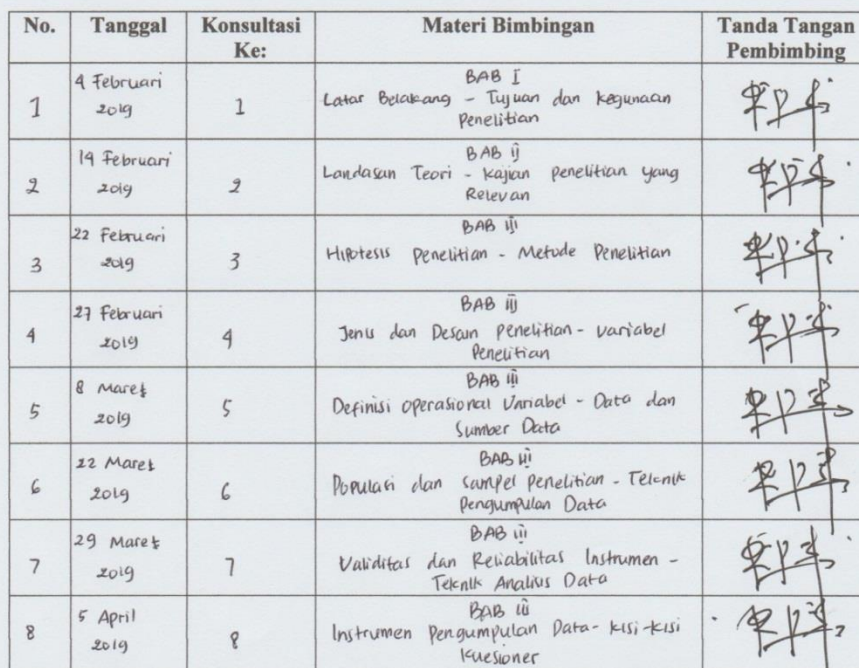 No.
Tanggal
Konsultasi
Ke:
Materi Bimbingan
Tanda Tangan
Pembimbing
1
4 Februari
2019
1
BAB I
Latar Belakang - Tujuan dan Kegunaan
Penelitian
2
14 Februari
2019
2
BAB ij
Landasan Teori - Kajian penelitian yang
Relevan
3
22 Februari
2019
3
BAB iij
Hipotesis Penelitian - Metode Penelitian
4
27 Februari
2019
4
BAB iij
Jenis dan Desain penelitian - variabel
Penelitian
5
8 Maret
2019
5
BAB iii
Definisi operasional Variabel - Data dan
Sumber Data
6
22 Maret
2019
6
BAB iii
Populasi dan sampel penelitian - Teknik
Pengumpulan Data
7
29 Maret
2019
7
BAB iii
Validitas dan Reliabilitas Instrumen -
Teknik Analisis Data
8
5 April
2019
8
BAB iii
Instrumen Pengumpulan Data - kisi-kisi
Kuesioner